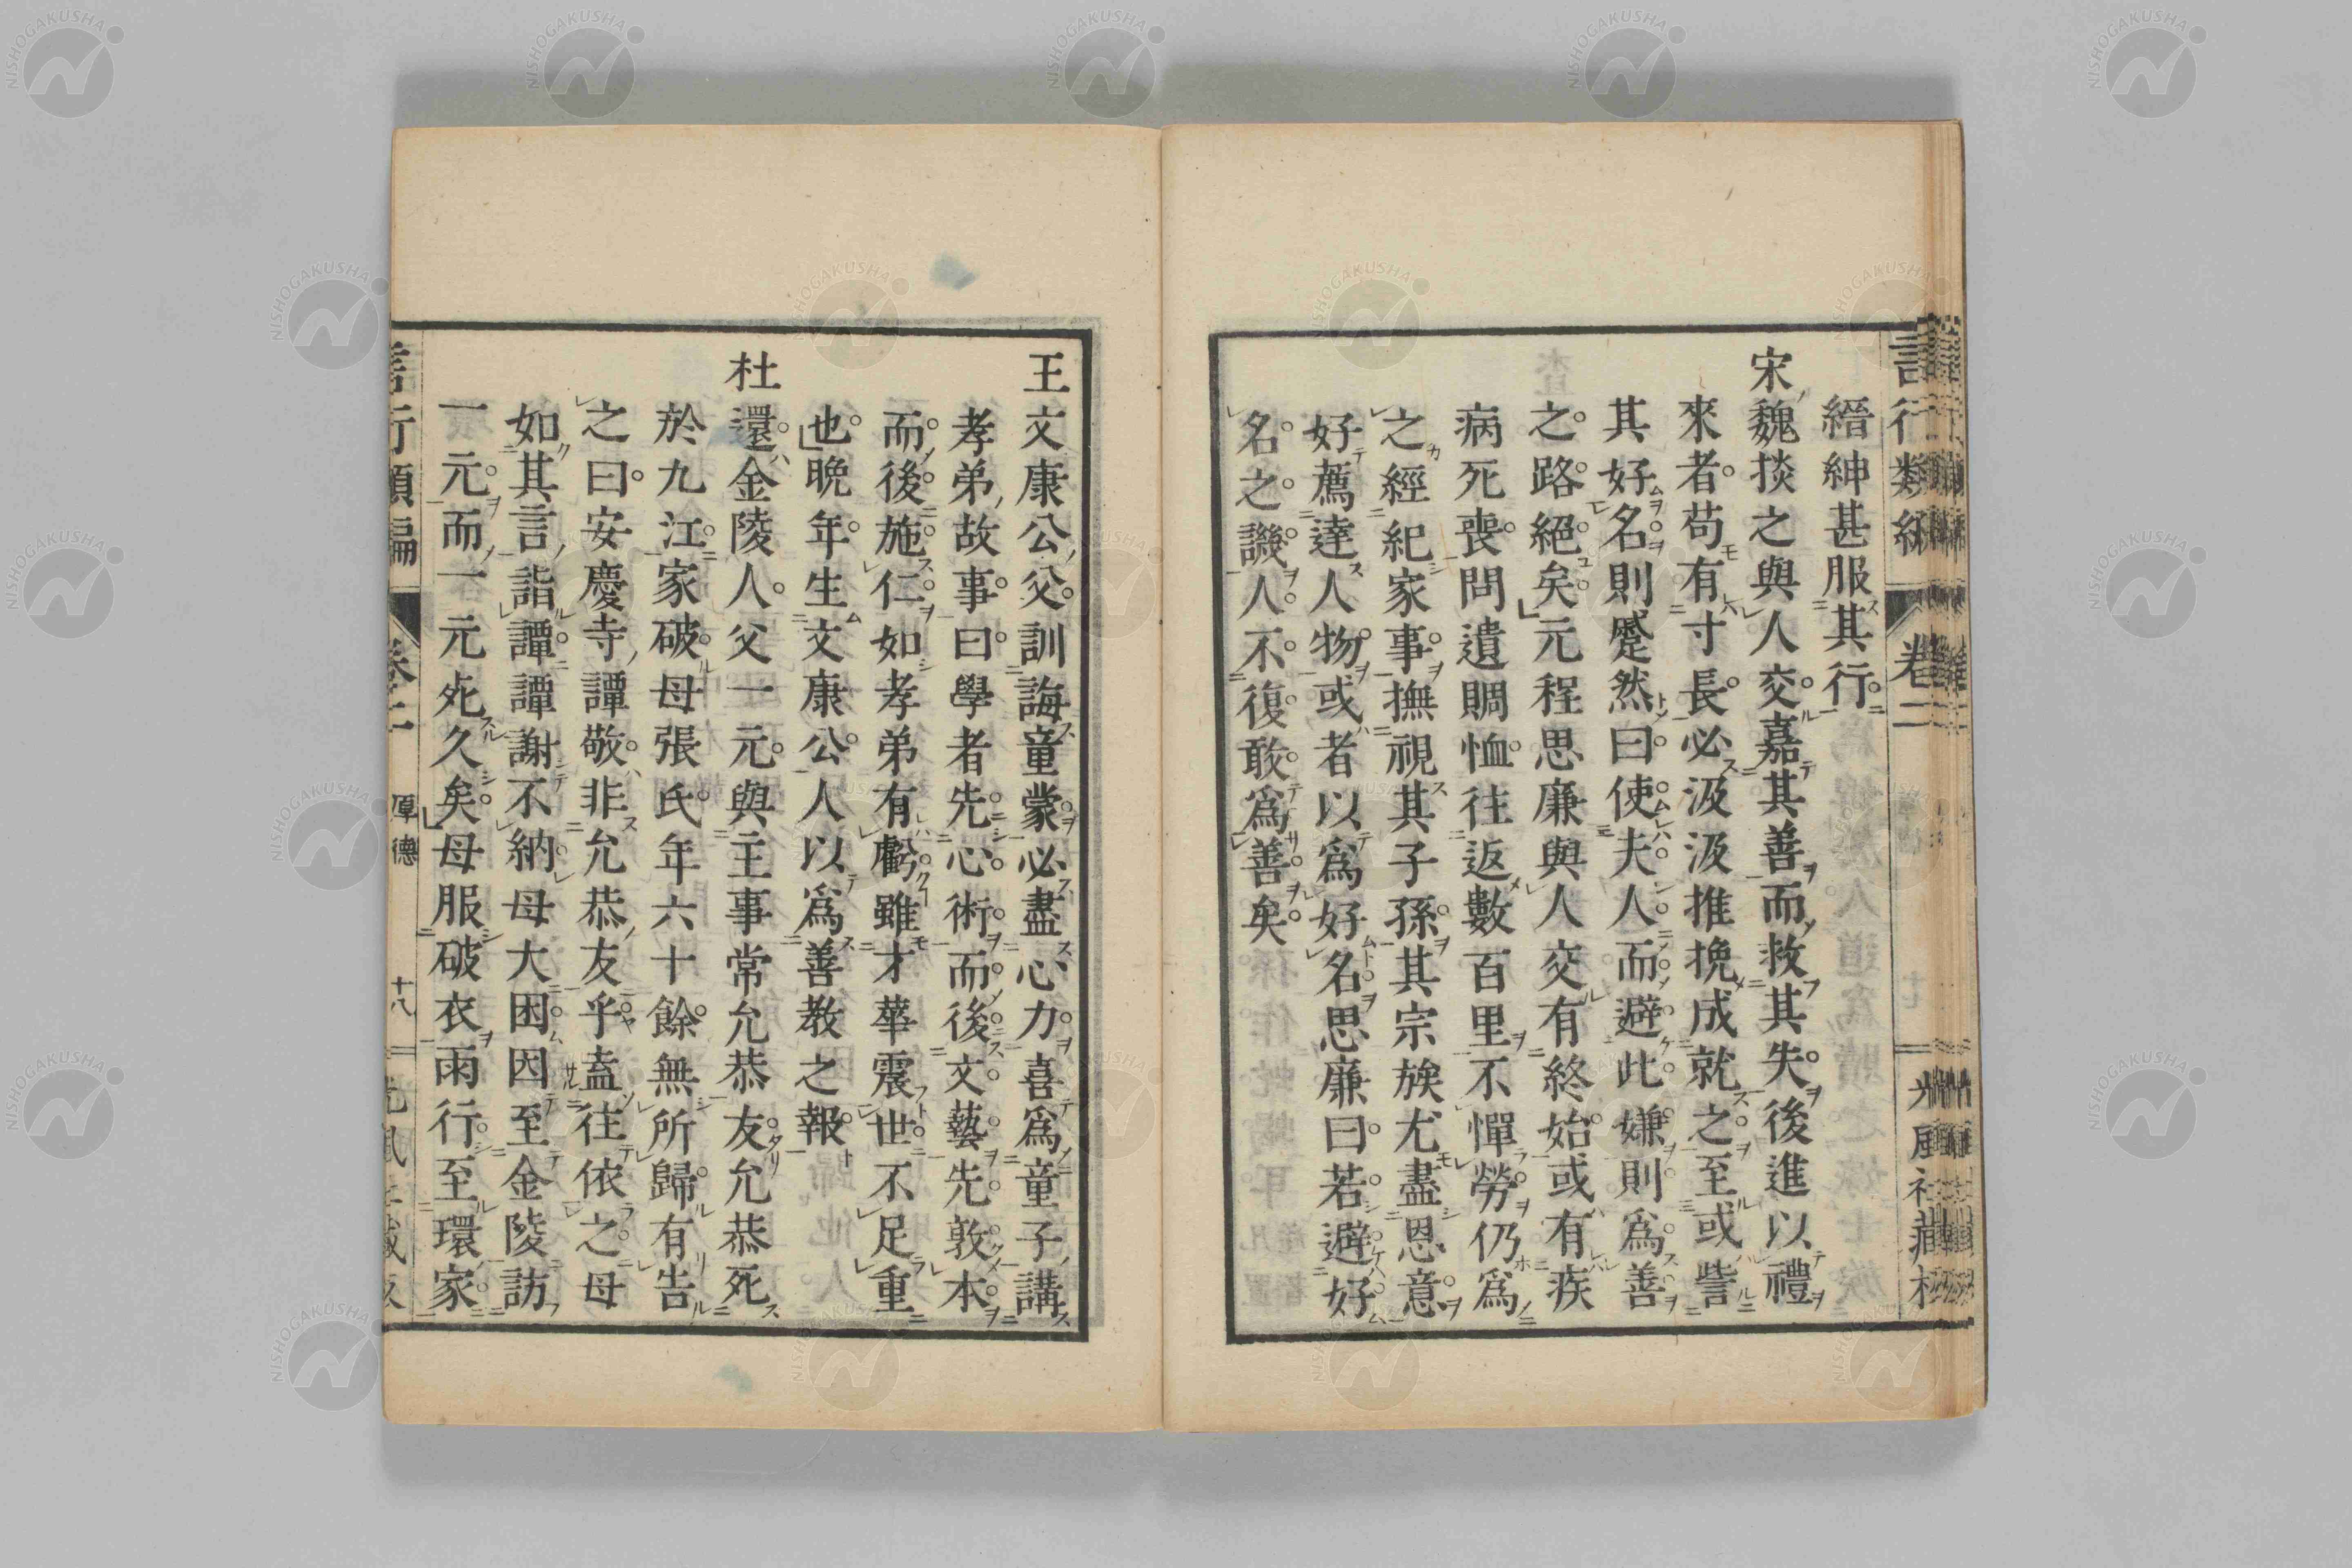 縉紳甚服其行
宋魏掞之與人交嘉其善而救其失後進以禮
來者苟有寸長必汲汲推挽成就之至或訾
其好名則蹙然曰使夫人而避此嫌則爲善
之路絕矣元程思廉與人交有終始或有疾
病死喪問遺賙恤往返數百里不憚勞仍爲
之經紀家事撫視其子孫其宗族尤盡恩意
好薦達人物或者以爲好名思廉曰若避好
名之譏人不復敢爲善矣
王文康公父訓誨童蒙必盡心力喜爲童子講
孝弟故事曰學者先心術而後文藝先敦本
而後施仁如孝弟有虧雖才華震世不足重
也晩年生文康公人以爲善教之報
杜還金陵人父一元與主事常允恭友允恭死
於九江家破母張氏年六十餘無所歸有告
之曰安慶寺譚敬非允恭友乎盍往依之母
如其言詣譚譚謝不納母大困因至金陵訪
一元而一元死久矣母服破衣雨行至環家
言行類編 卷二 厚德 十八
NISHOGAKUSHA